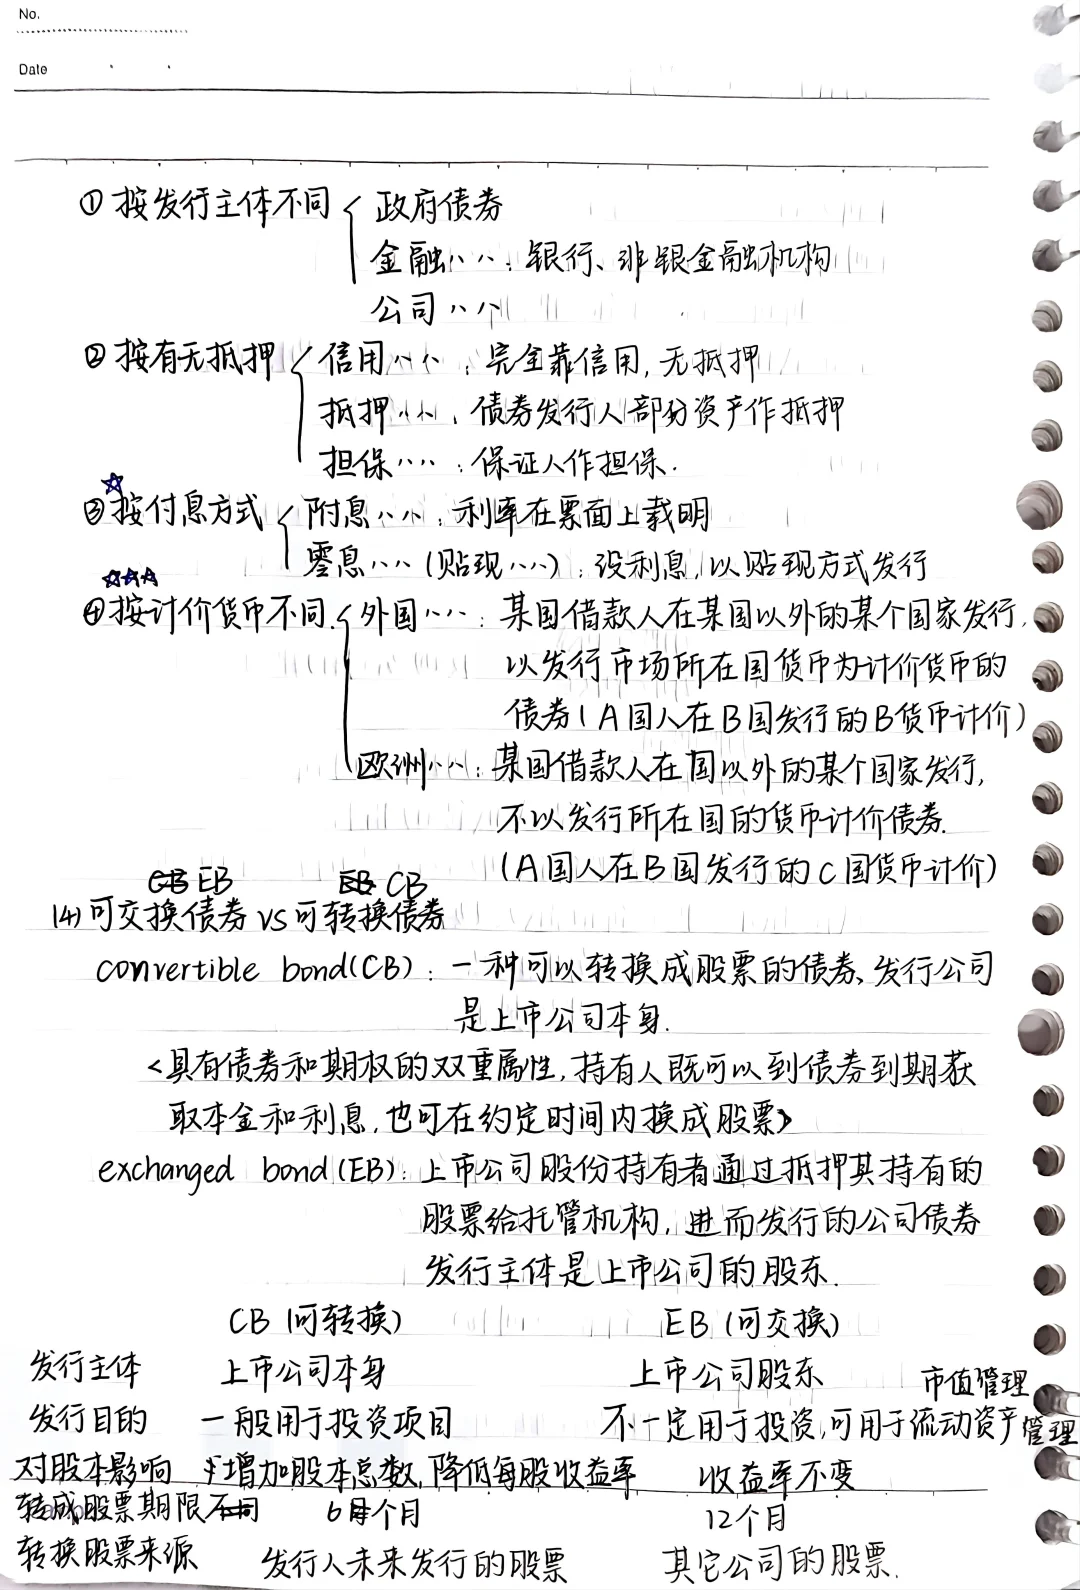 No.
Date
① 按发行主体不同 < 政府债券
金融〃〃：银行、非银金融机构
公司〃〃
② 按有无抵押 < 信用〃〃：完全靠信用,无抵押
抵押〃〃：债券发行人部分资产作抵押
担保〃〃：保证人作担保.
☆
③ 按付息方式 < 附息〃〃：利率在票面上载明
零息〃〃(贴现〃〃)：没利息,以贴现方式发行
☆☆☆
④ 按计价货币不同 < 外国〃〃：某国借款人在某国以外的某个国家发行,
以发行市场所在国货币为计价货币的
债券(A国人在B国发行的B货币计价)
欧洲〃〃：某国借款人在国以外的某个国家发行,
不以发行所在国的货币计价债券.
(A国人在B国发行的C国货币计价)
CB EB EB CB
(4)可交换债券 VS 可转换债券
convertible bond(CB)：一种可以转换成股票的债券,发行公司
是上市公司本身.
<具有债券和期权的双重属性,持有人既可以到债券到期获
取本金和利息,也可在约定时间内换成股票>
exchanged bond(EB)：上市公司股份持有者通过抵押其持有的
股票给托管机构,进而发行的公司债券
发行主体是上市公司的股东.
CB (可转换) EB (可交换)
发行主体 上市公司本身 上市公司股东 市值管理
发行目的 一般用于投资项目 不一定用于投资,可用于流动资产管理
对股本影响 增加股本总数,降低每股收益率 收益率不变
转成股票期限不同 6月个月 12个月
转换股票来源 发行人未来发行的股票 其它公司的股票.